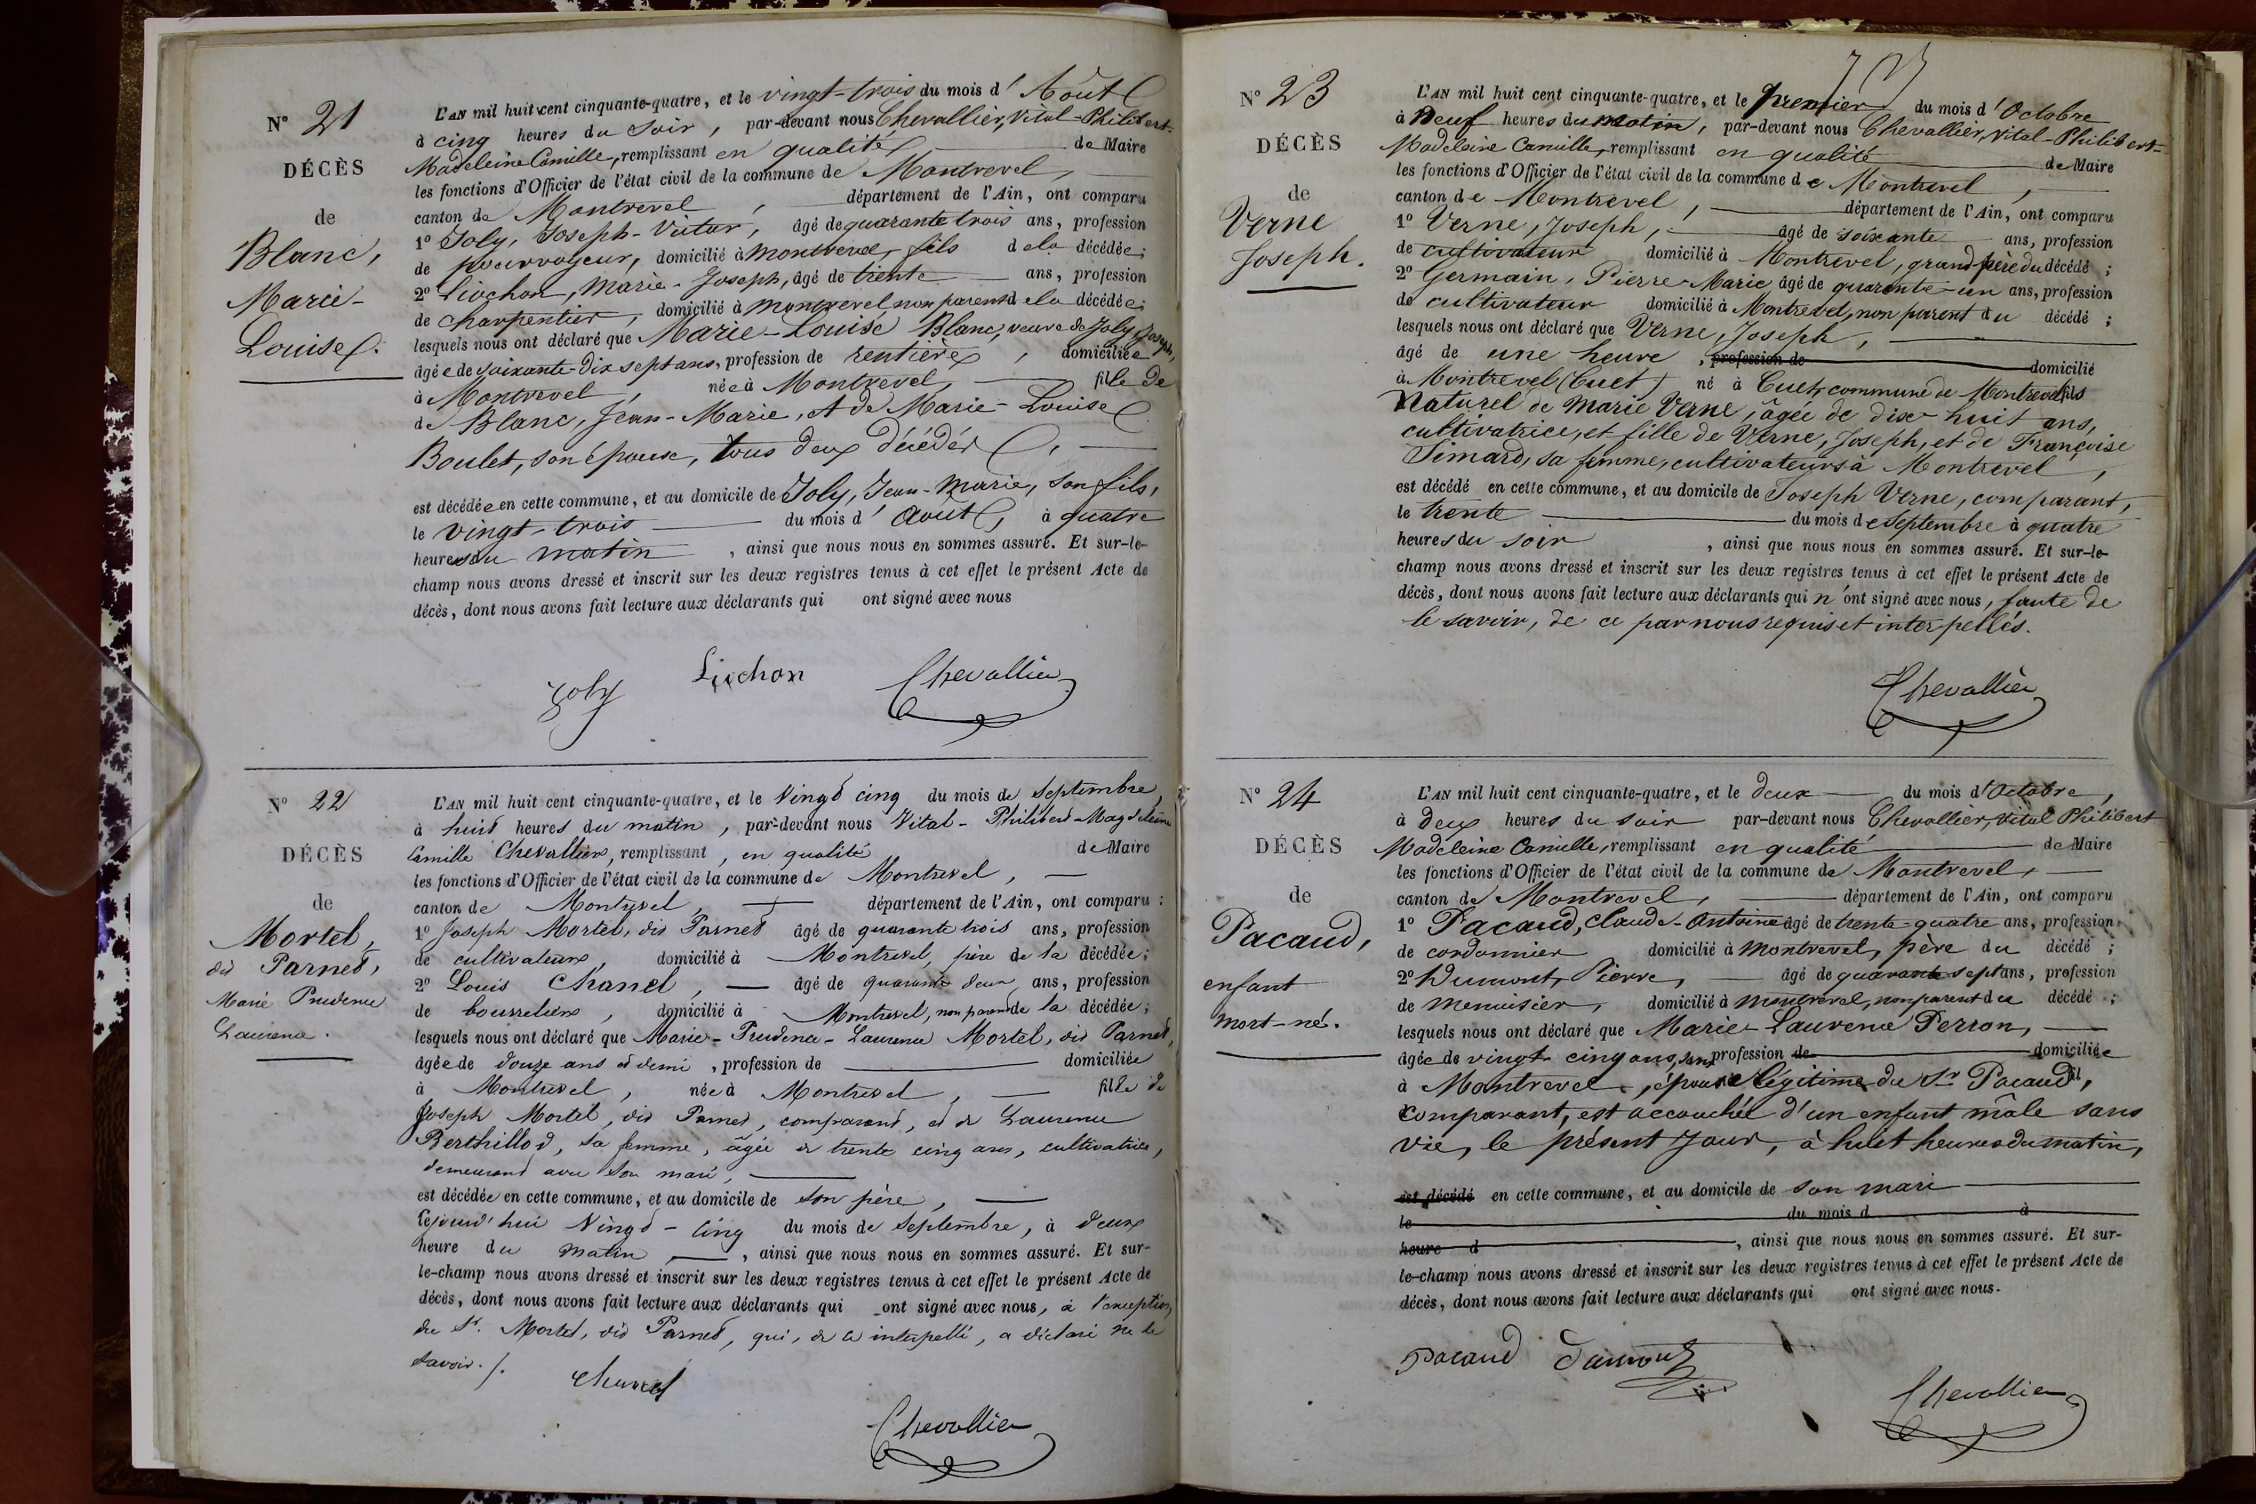 N° 21
DÉCÈS
de
Blanc,
Marie-
Louise.
L'AN mil huit cent cinquante-quatre, et le vingt-trois du mois d'Août
à cinq heures du soir, par-devant nous Chevallier, Vital-Philibert-
Madeleine Camille, remplissant en qualité de Maire
les fonctions d'Officier de l'état civil de la commune de Montrevel,
canton de Montrevel, département de l'Ain, ont comparu
1° Joly, Joseph-Victor, âgé de quarante trois ans, profession
de pourvoyeur, domicilié à Montrevel, fils de la décédée;
2° Liochon, Marie-Joseph, âgé de trente ans, profession
de charpentier, domicilié à Montrevel, non parent de la décédée;
lesquels nous ont déclaré que Marie-Louise Blanc, veuve de Joly Joseph,
âgée de soixante-dix sept ans, profession de rentière, domiciliée
à Montrevel, née à Montrevel, fille de
de Blanc, Jean-Marie, et de Marie-Louise
Boulet, son épouse, tous deux décédés,
est décédée en cette commune, et au domicile de Joly, Jean-Marie, son fils,
le vingt-trois du mois d'août, à quatre
heures du matin, ainsi que nous nous en sommes assuré. Et sur-le-
champ nous avons dressé et inscrit sur les deux registres tenus à cet effet le présent Acte de
décès, dont nous avons fait lecture aux déclarants qui ont signé avec nous
Joly Liochon Chevallier
N° 22
DÉCÈS
de
Mortel,
dit Parnet,
Marie Prudence
Laurence.
L'AN mil huit cent cinquante-quatre, et le Vingt cinq du mois de Septembre,
à huit heures du matin, par-devant nous Vital-Philibert-Magdeleine
Camille Chevallier, remplissant, en qualité de Maire
les fonctions d'Officier de l'état civil de la commune de Montrevel,
canton de Montrevel, département de l'Ain, ont comparu:
1° Joseph Mortel, dit Parnet âgé de quarante trois ans, profession
de cultivateur, domicilié à Montrevel, père de la décédée;
2° Louis Chanel, âgé de quarante deux ans, profession
de bourrelier, domicilié à Montrevel, non parent de la décédée;
lesquels nous ont déclaré que Marie-Prudence-Laurence Mortel, dit Parnet,
âgée de douze ans et demi, profession de domiciliée
à Montrevel, née à Montrevel, fille de
Joseph Mortel, dit Parnet, comparant, et de Laurence
Berthillod, sa femme, âgée de trente cinq ans, cultivatrice,
demeurant avec son mari,
est décédée en cette commune, et au domicile de son père,
cejourd'hui Vingt-cinq du mois de Septembre, à deux
heure du matin, ainsi que nous nous en sommes assuré. Et sur-
le-champ nous avons dressé et inscrit sur les deux registres tenus à cet effet le présent Acte de
décès, dont nous avons fait lecture aux déclarants qui ont signé avec nous, à l'exception
du Sr. Mortel, dit Parnet, qui, de ce interpellé, a déclaré ne le
savoir./.
Chanel
Chevallier
N° 23
DÉCÈS
de
Verne
Joseph.
L'AN mil huit cent cinquante-quatre, et le premier du mois d'Octobre
à neuf heures du matin, par-devant nous Chevallier, Vital-Philibert-
Madeleine Camille, remplissant en qualité de Maire
les fonctions d'Officier de l'état civil de la commune de Montrevel,
canton de Montrevel, département de l'Ain, ont comparu
1° Verne, Joseph, âgé de soixante ans, profession
de cultivateur domicilié à Montrevel, grand-père du décédé;
2° Germain, Pierre-Marie, âgé de quarante-un ans, profession
de cultivateur domicilié à Montrevel, non parent du décédé;
lesquels nous ont déclaré que Verne, Joseph,
âgé de une heure, profession de domicilié
à Montrevel (Cuet) né à Cuet, commune de Montrevel fils
Naturel de Marie Verne, âgée de dix-huit ans,
cultivatrice, et fille de Verne, Joseph, et de Françoise
Simard, sa femme, cultivateurs à Montrevel,
est décédé en cette commune, et au domicile de Joseph Verne, comparant,
le trente du mois de septembre à quatre
heures du soir, ainsi que nous nous en sommes assuré. Et sur-le-
champ nous avons dressé et inscrit sur les deux registres tenus à cet effet le présent Acte de
décès, dont nous avons fait lecture aux déclarants qui n'ont signé avec nous, faute de
le savoir, de ce par nous requis et interpellés.
Chevallier
N° 24
DÉCÈS
de
Pacaud,
enfant
mort-né.
L'AN mil huit cent cinquante-quatre, et le deux du mois d'Octobre,
à deux heures du soir par-devant nous Chevallier, Vital Philibert
Madeleine Camille, remplissant en qualité de Maire
les fonctions d'Officier de l'état civil de la commune de Montrevel,
canton de Montrevel, département de l'Ain, ont comparu
1° Pacaud, Claude-Antoine âgé de trente-quatre ans, profession
de cordonnier domicilié à Montrevel, père du décédé;
2° Dumont, Pierre, âgé de quarante sept ans, profession
de menuisier, domicilié à Montrevel, non parent du décédé;
lesquels nous ont déclaré que Marie-Laurence Perron,
âgée de vingt-cinq ans, sans profession de domiciliée
à Montrevel, épouse légitime du Sr Pacaud, fil
comparant, est accouchée d'un enfant mâle sans
vie, le présent jour, à huit heures du matin,
est décédé en cette commune, et au domicile de son mari
le du mois d à
heure d, ainsi que nous nous en sommes assuré. Et sur-
le-champ nous avons dressé et inscrit sur les deux registres tenus à cet effet le présent Acte de
décès, dont nous avons fait lecture aux déclarants qui ont signé avec nous.
Pacaud Dumont
Chevallier